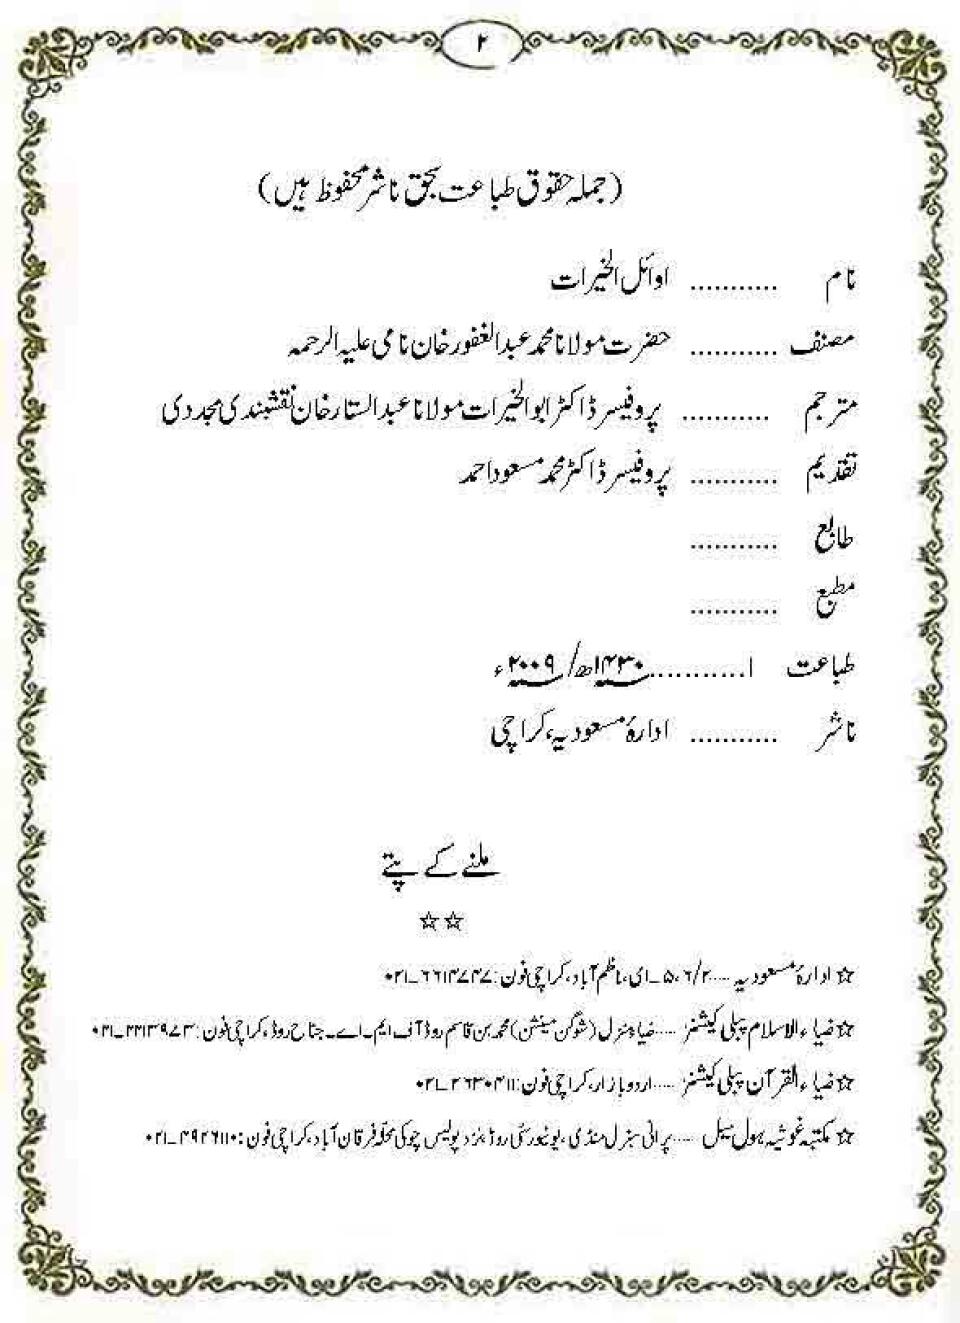 ۲
(جملہ حقوق طباعت بحق ناشر محفوظ ہیں)
نام ........... اوائل الخیرات
مصنف ........... حضرت مولانا محمد عبدالغفور خان نامی علیہ الرحمہ
مترجم ........... پروفیسر ڈاکٹر ابوالخیرات مولانا عبدالستار خان نقشبندی مجددی
تقدیم ........... پروفیسر ڈاکٹر محمد مسعود احمد
طابع ...........
مطبع ...........
طباعت ا...........۱۴۳۰ھ/۲۰۰۹ء
ناشر ........... ادارۂ مسعودیہ، کراچی
ملنے کے پتے
☆☆
☆ ادارۂ مسعودیہ ....۶/۲، ۵۔ای، ناظم آباد، کراچی فون: ۶۶۱۴۷۴۷۔۰۲۱
☆ ضیاء الاسلام پبلی کیشنز ....ضیاء منزل (شوگن مینشن) محمد بن قاسم روڈ آف ایم۔اے۔جناح روڈ، کراچی فون: ۲۲۱۳۹۷۳۔۰۲۱
☆ ضیاء القرآن پبلی کیشنز ....اردو بازار، کراچی فون: ۲۶۳۰۴۱۱۔۰۲۱
☆ مکتبہ غوثیہ ہول سیل ....پرانی سبزی منڈی، یونیورسٹی روڈ نزد پولیس چوکی محلہ فرقان آباد، کراچی فون: ۴۹۲۶۱۱۰۔۰۲۱